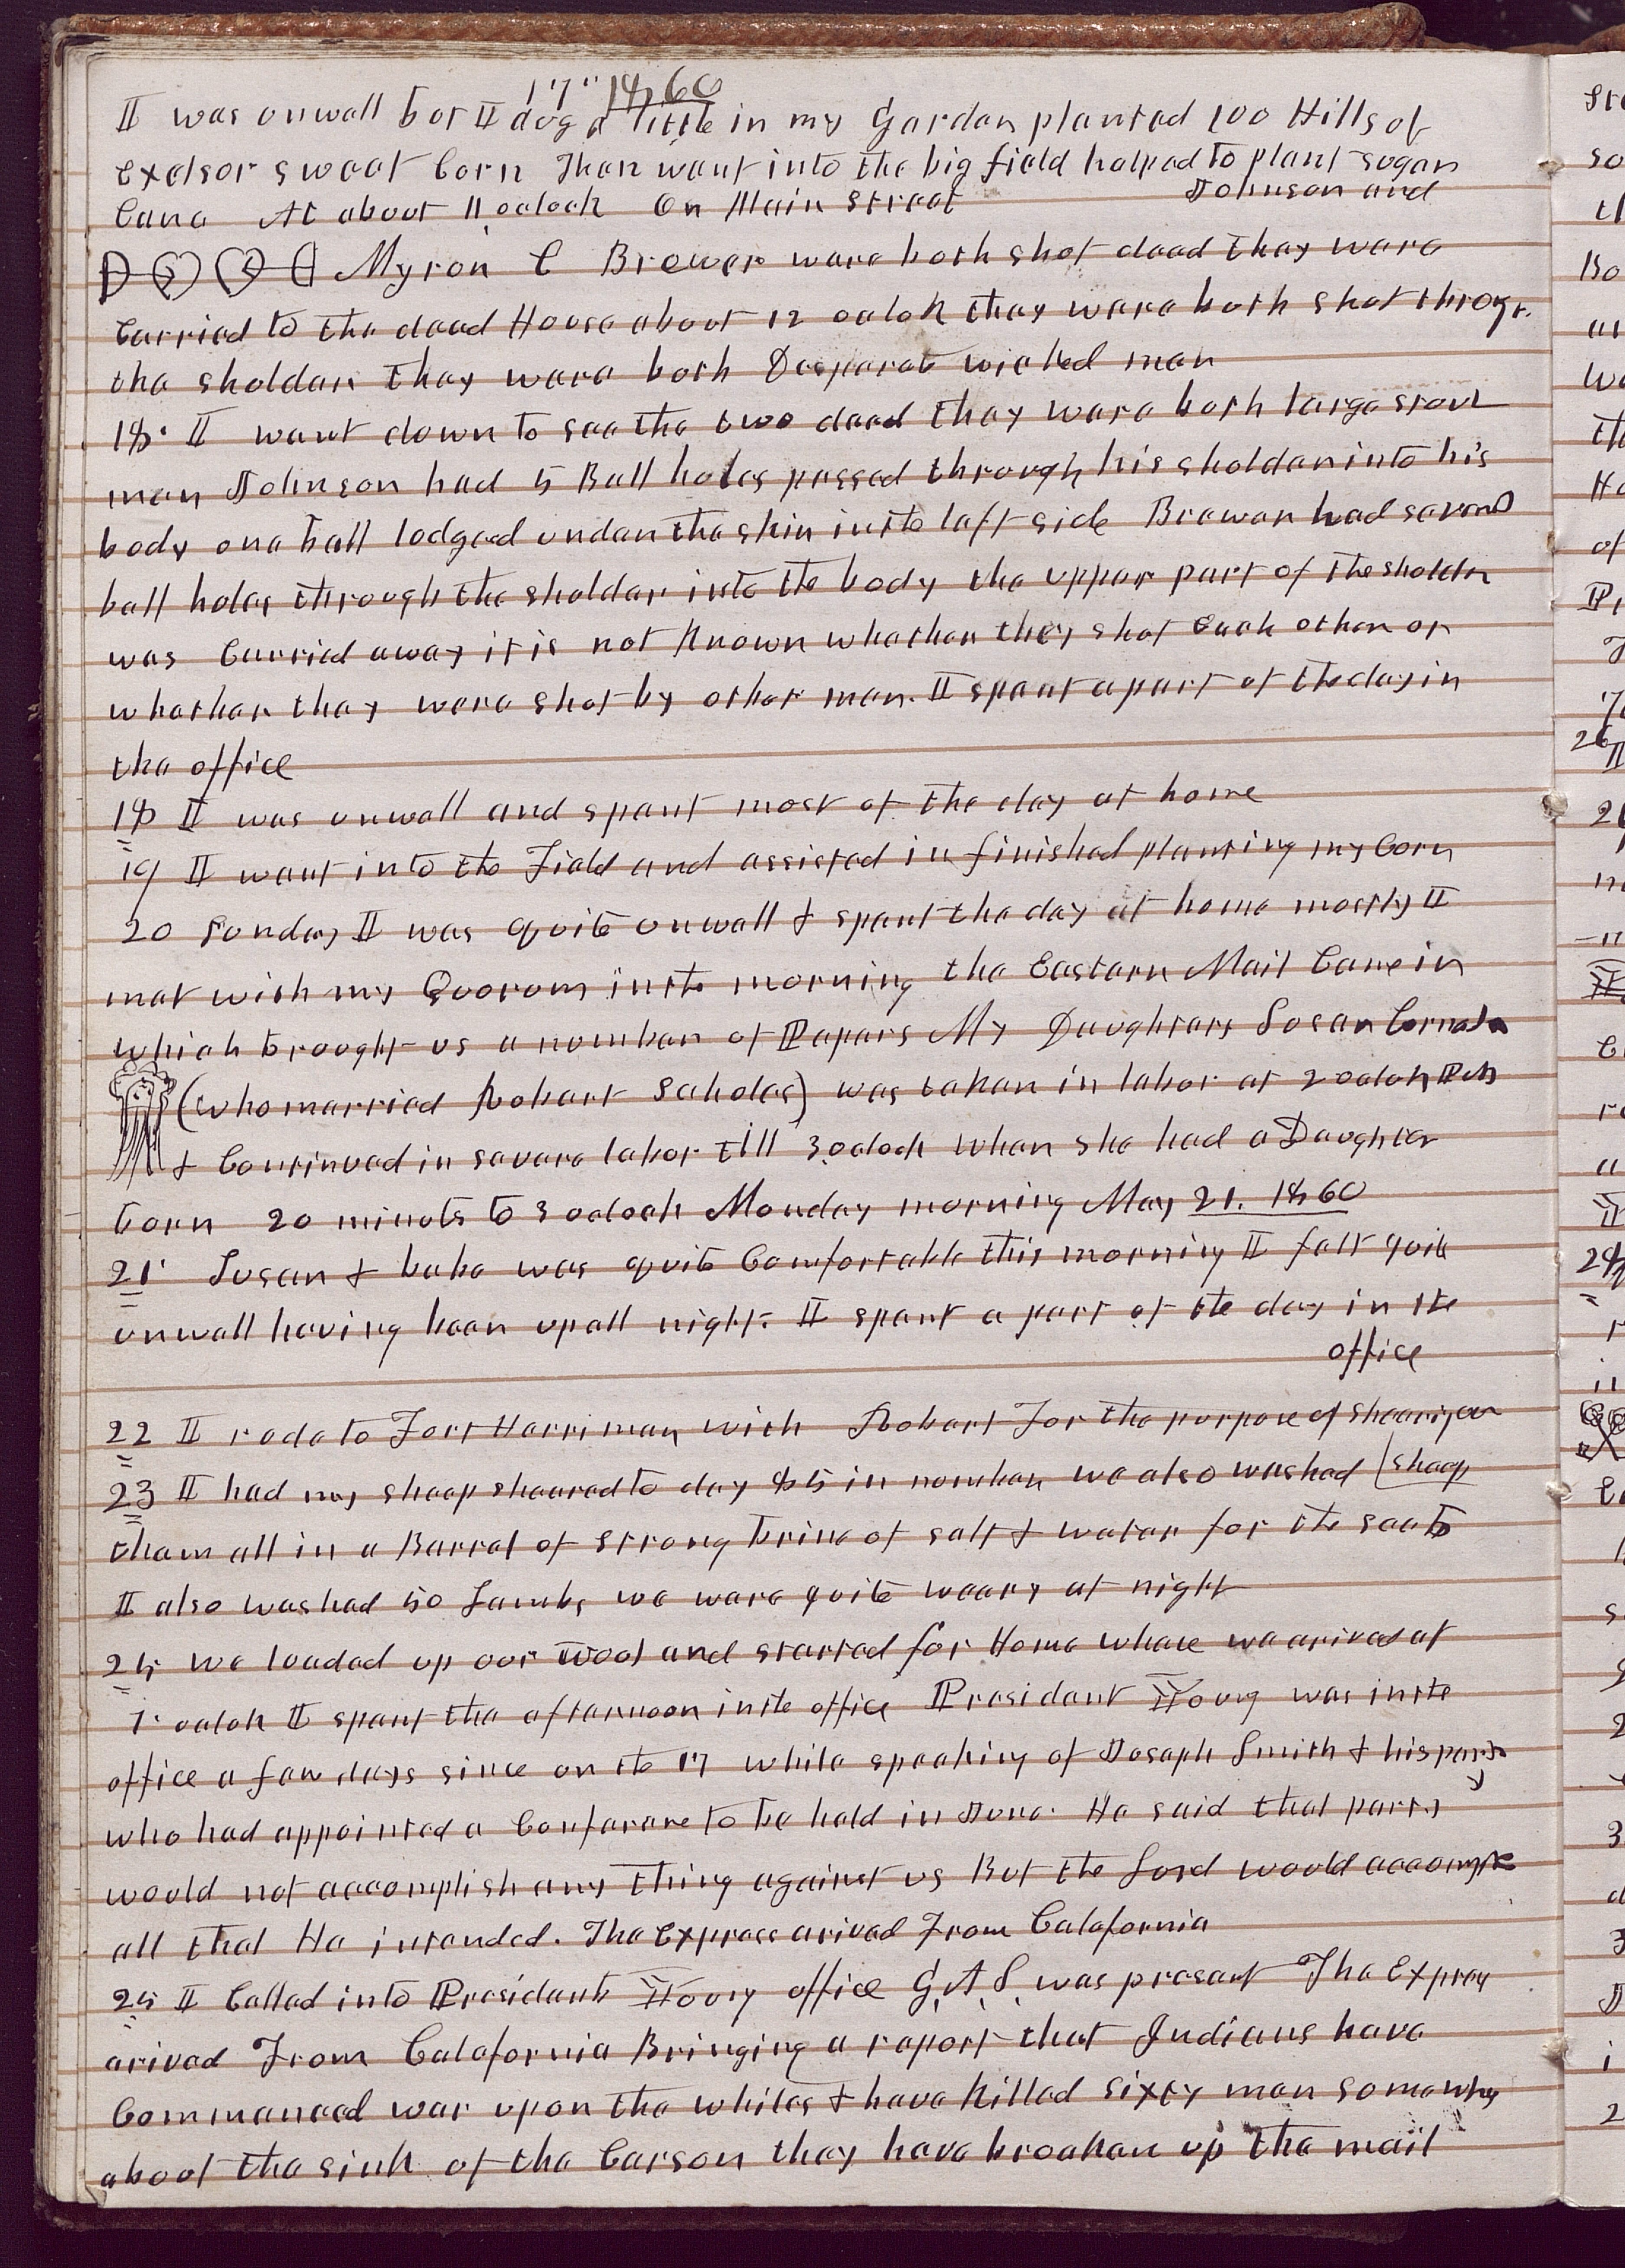 17" 1860
I was unwell but I dug a little in my Garden planted 100 Hills of
Excelsor sweet Corn Then went into the big field helped to plant sugar
Cane At about 11 oclock On Main Street Johnson and
Myron C Brewer were both shot dead they were
Carried to the dead House about 12 oclok they were both shot through
the sholder they were both Desperate wicked men
18. I went down to see the two dead they were both large stout
men Johnson had 5 Ball holes passed through his sholder into his
body one ball lodged under the skin in the left side Brewer had several
ball holes through the sholder into the body the upper part of the sholder
was Carried away it is not known whether they shot Each other or
whether they were shot by other men. I spent a part of the day in
the office
18 I was unwell and spent most of the day at home
19 I went into the Field and assisted in finished planting my Corn
20 Sunday I was quite unwell & spent the day at home mostly I
met with my Quorum in the morning the Eastern Mail Came in
which brought us a number of Papers My Daughters Susan Cornela
(who married Robart Scholes) was taken in labor at 2 oclok PM
& Continued in severe labor till 3 oclock when she had a Daughter
born 20 minuts to 3 oclock Monday morning May 21. 1860
21. Susan & babe was quite Comfortable this morning I felt quite
unwell having been up all night. I spent a part of the day in the
office
22 I rode to Fort Harriman with Robart for the purpose of shearing our
23 I had my sheep sheared to day 85 in number we also washed (sheep
them all in a Barrel of strong brine of salt & water for the scab
I also washed 50 Lambs we were quite weary at night
24 we loaded up our wool and started for Home whare we arived at
1. oclok I spent the afternoon in the office President Young was in the
office a few days since on the 17 while speaking of Joseph Smith & his party
who had appointed a Conferance to be held in June. He said that party
would not accomplish any thing against us But the Lord would accomplish
all that He intended. The Express arived From Calafornia
25 I Called into Presidents Young office G. A. S. was present The Express
arived From Calafornia Bringing a report that Indians have
Commenced war upon the whites & have killed sixty men some whare
about the sink of the Carson they have broaken up the mail